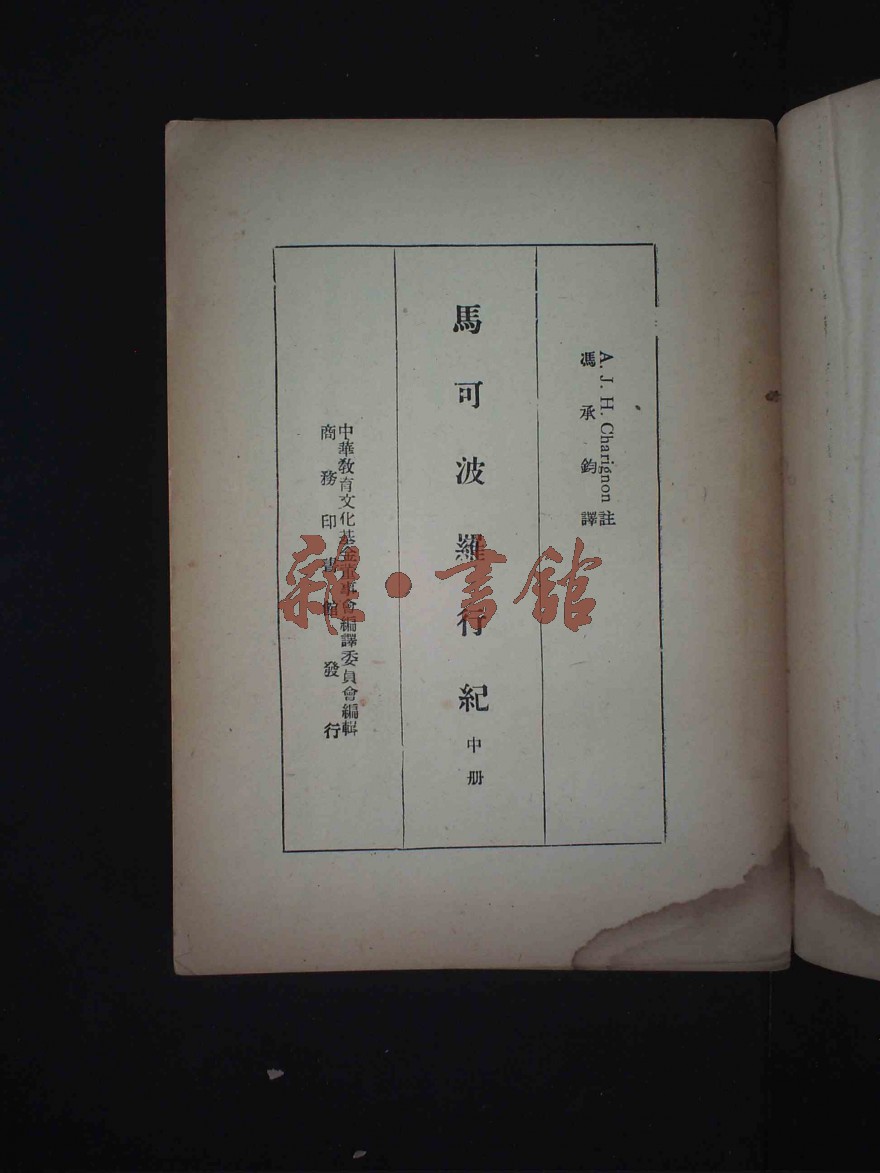 A. J. H. Charignon 註
馮承鈞譯
馬可波羅行紀 中册
中華教育文化基金董事會編譯委員會編輯
商務印書館發行
雜·書館